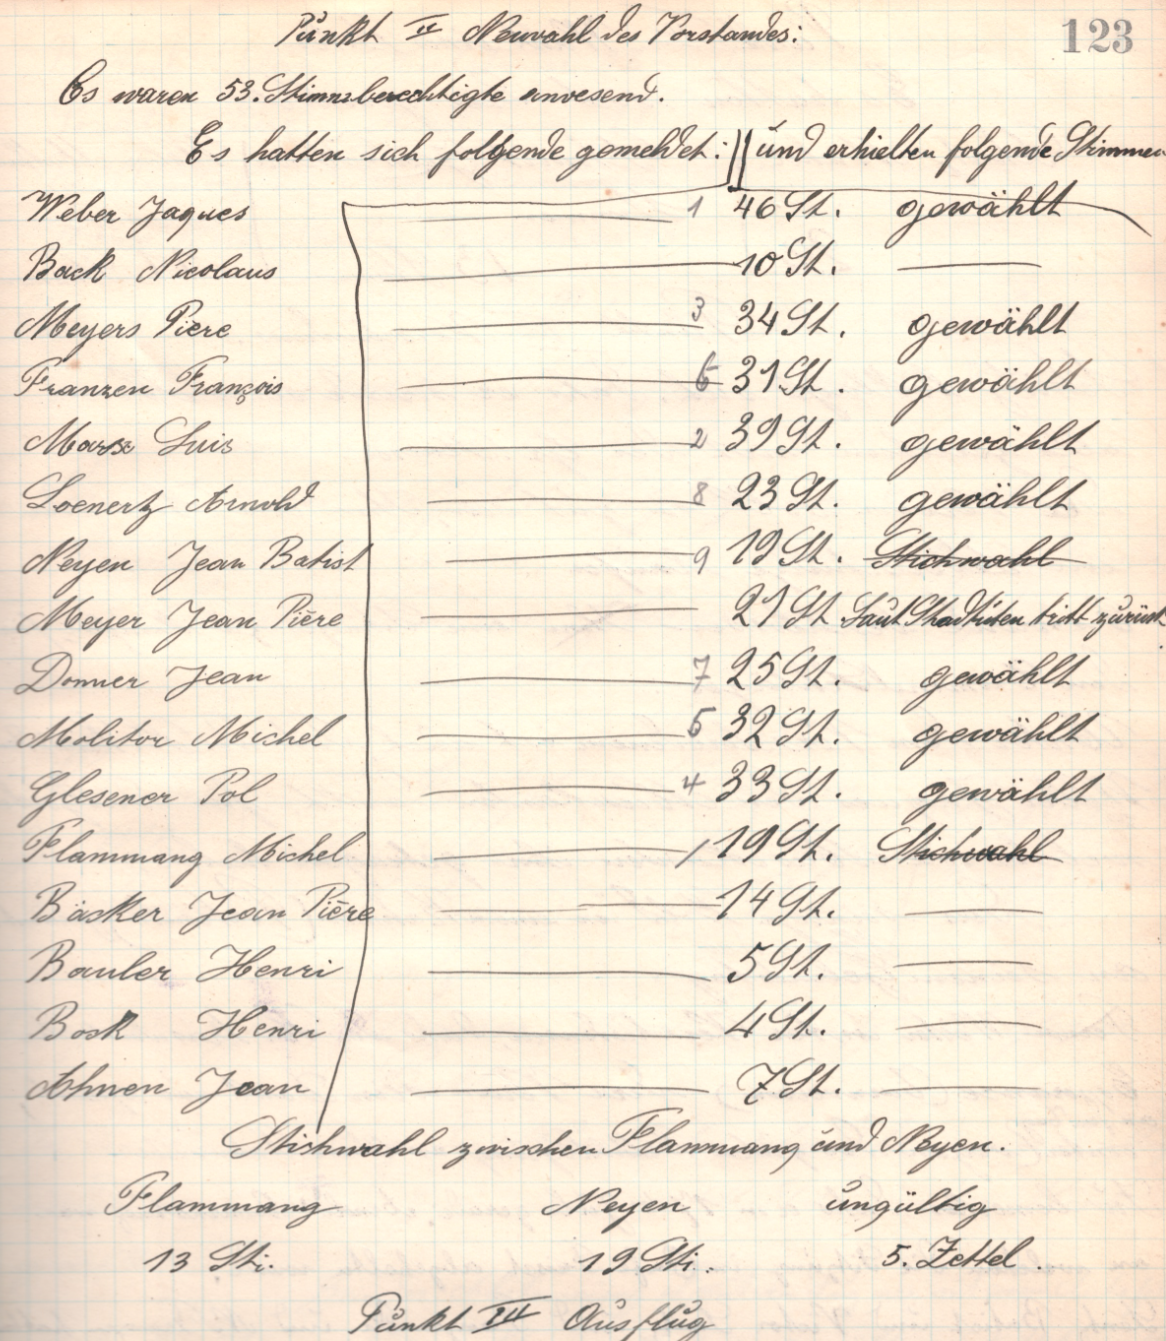 Punkt II Neuwahl des Vorstandes:
123
Es waren 53. Stimmberechtigte anwesend.
Es hatten sich folgende gemeldet: und erhielten folgende Stimmen
Weber Jaques 1 46 St. gewählt
Back Nicolaus 10 St. —
Meyers Piere 3 34 St. gewählt
Franzen François 6 31 St. gewählt
Marx Luis 2 39 St. gewählt
Loenertz Arnold 8 23 St. gewählt
Neyen Jean Batist 9 19 St. Stichwahl
Meyer Jean Piere 21 St Laut Stadtuten tritt zurück
Donner Jean 7 25 St. gewählt
Molitor Michel 5 32 St. gewählt
Glesener Pol 4 33 St. gewählt
Flammang Michel 19 St. Stichwahl
Bäsker Jean Piere 14 St. —
Bauler Henri 5 St. —
Bock Henri 4 St. —
Ahnen Jean 7 St. —
Stichwahl zwischen Flammang und Neyen.
Flammang Neyen ungültig
13 Sti. 19 Sti. 5. Zettel.
Punkt III Ausflug